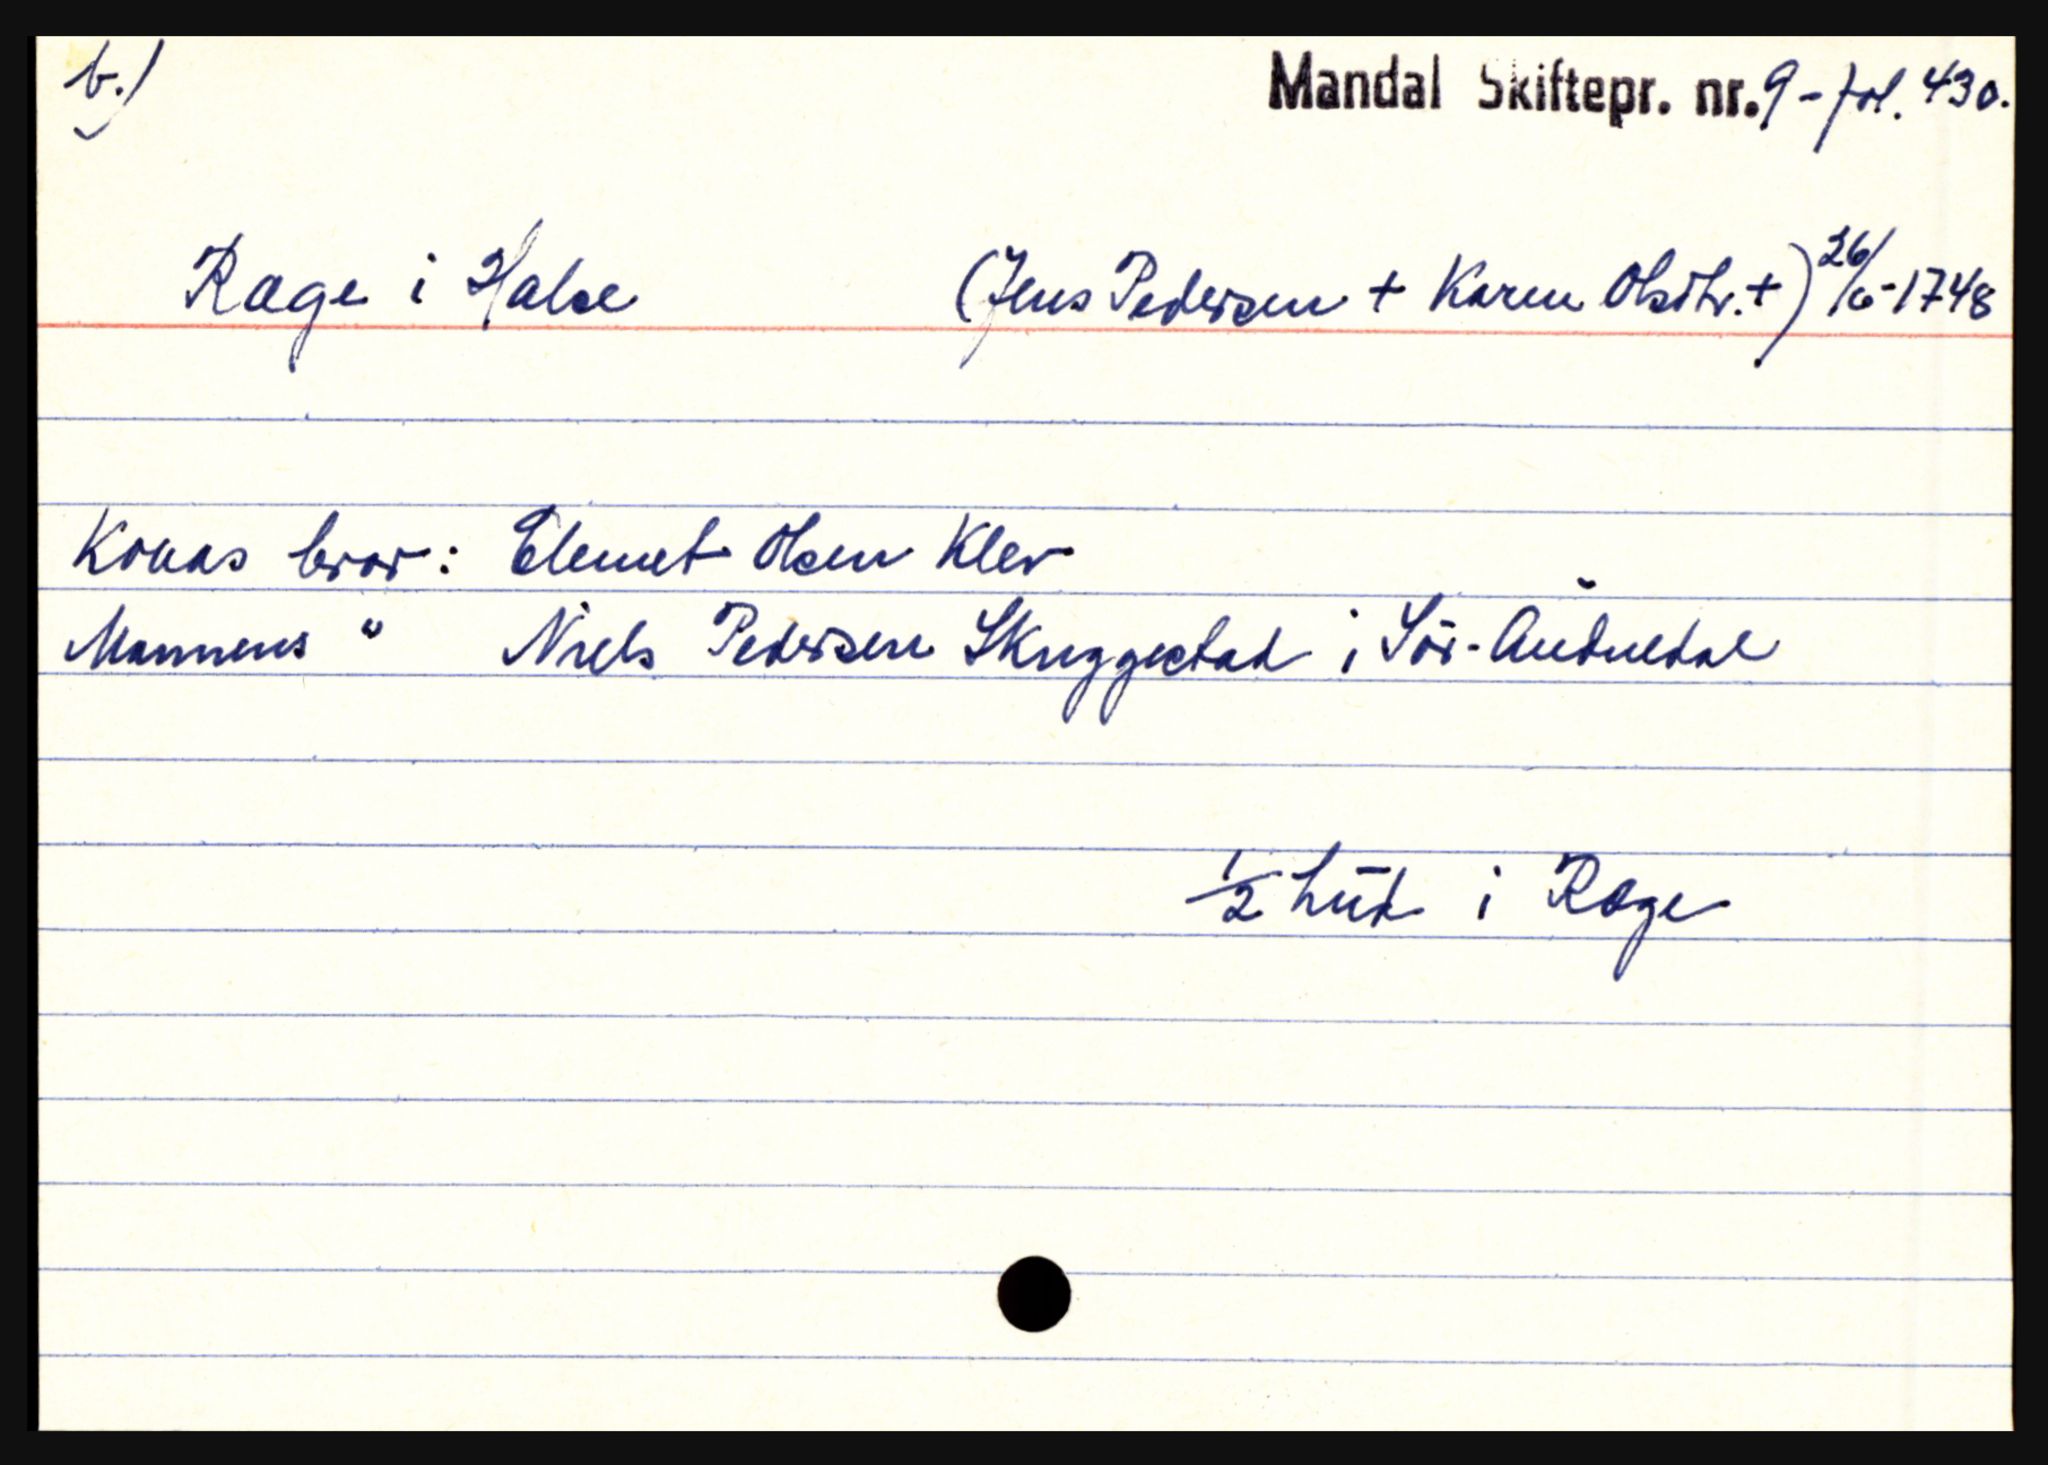 b.)
Mandal Skiftepr. nr. 9 - fol. 430.
Ræge i Halse (Jens Pedersen + Karen Olsdtr. +) 26/6-1748
Konas bror: Elemet Olsen Klev
Mannens " Niels Pedersen Skuggestad i Sör-Audnedal
1/2 hud i Ræge